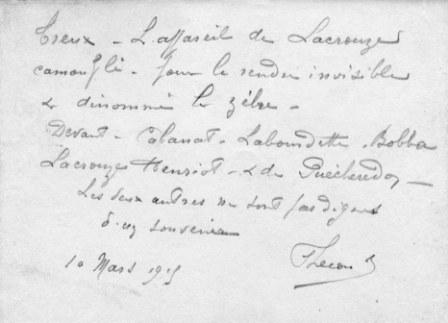 Treux - L'appareil de Lacrouze
camouflé - pour le rendre invisible
& dénommé le zèbre -
Devant - Cabanat - Labourdette - Bobba
Lacrouze Henriot - & de
Les deux autres ne sont pas dignes
d'un souvenir
10 Mars 1915